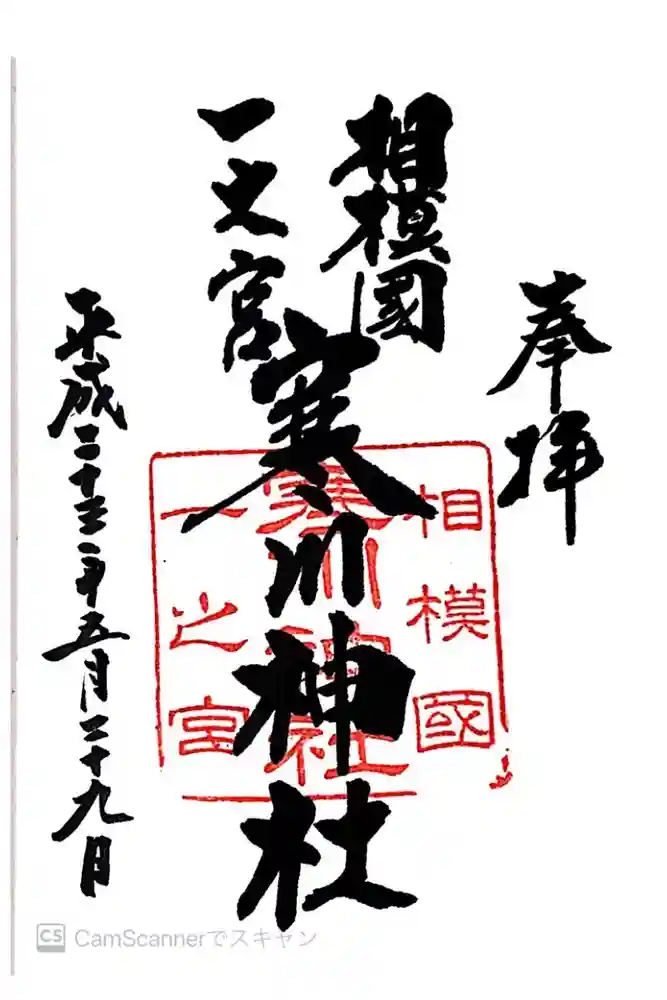 奉拝
相模國
一之宮
寒川神社
平成二十三年五月二十九日
相模國
寒川神社
一之宮
CS CamScannerでスキャン